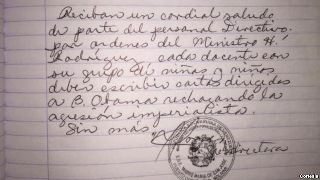 Reciban un cordial saludo
de parte del personal Directivo.
por ordenes del Ministro H.
Rodríguez, cada docente con
su grupo de niñas y niños
deben escribir cartas dirigidas
a B. Obama rechazando la
agresión imperialista.
Sin más.
Subdirectora
Cortesía